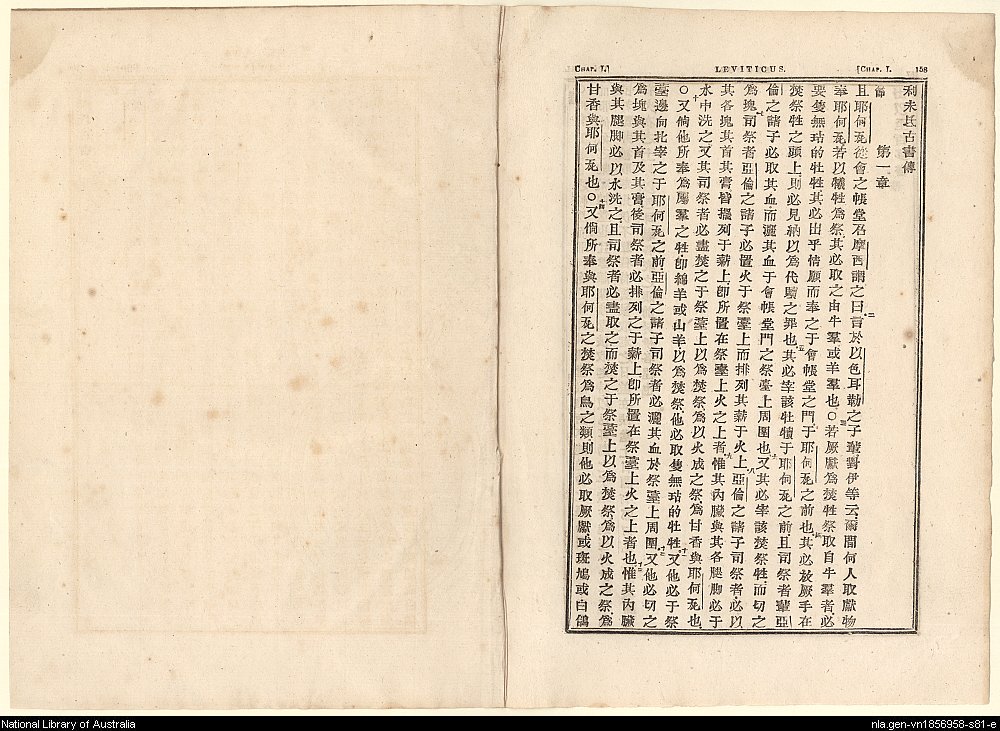 CHAP. I.]
LEVITICUS.
[CHAP. I.
158
利未氏古書傳
第一章
且耶何瓦從會之帳堂召摩西謂之曰言於以色耳勒之子輩對伊等云爾間何人取獻物
奉耶何瓦若以犧牲爲祭其必取之由牛羣或羊羣也○若厥獻爲焚牲祭取自牛羣者必
要隻無玷的牡牲其必出乎情願而奉之于會帳堂之門于耶何瓦之前也其必放厥手在
焚祭牲之頭上則必見納以爲代贖之罪也其必宰該牡犢于耶何瓦之前且司祭者輩亞
倫之諸子必取其血而灑其血于會帳堂門之祭臺上周圍也又其必宰該焚祭牲而切之
爲塊司祭者亞倫之諸子必置火于祭臺上而排列其薪于火上亞倫之諸子司祭者必以
其各塊其首其膏皆擺列于薪上卽所置在祭臺上火之上者惟其內臟與其各腿脚必于
水中洗之又其司祭者必盡焚之于祭臺上以爲焚祭爲以火成之祭爲甘香與耶何瓦也
○又倘他所奉爲屬羣之牲卽綿羊或山羊以爲焚祭他必取隻無玷的牡牲又他必于祭
臺邊向北宰之于耶何瓦之前亞倫之諸子司祭者必灑其血於祭臺上周圍又他必切之
爲塊與其首及其膏後司祭者必排列之于薪上卽所置在祭臺上火之上者也惟其內臟
與其腿脚必以水洗之且司祭者必盡取之而焚之于祭臺上以爲焚祭爲以火成之祭爲
甘香與耶何瓦也○又倘所奉與耶何瓦之焚祭爲鳥之類則他必取厥獻或斑鳩或白鴿
National Library of Australia
nla.gen-vn1856958-s81-e